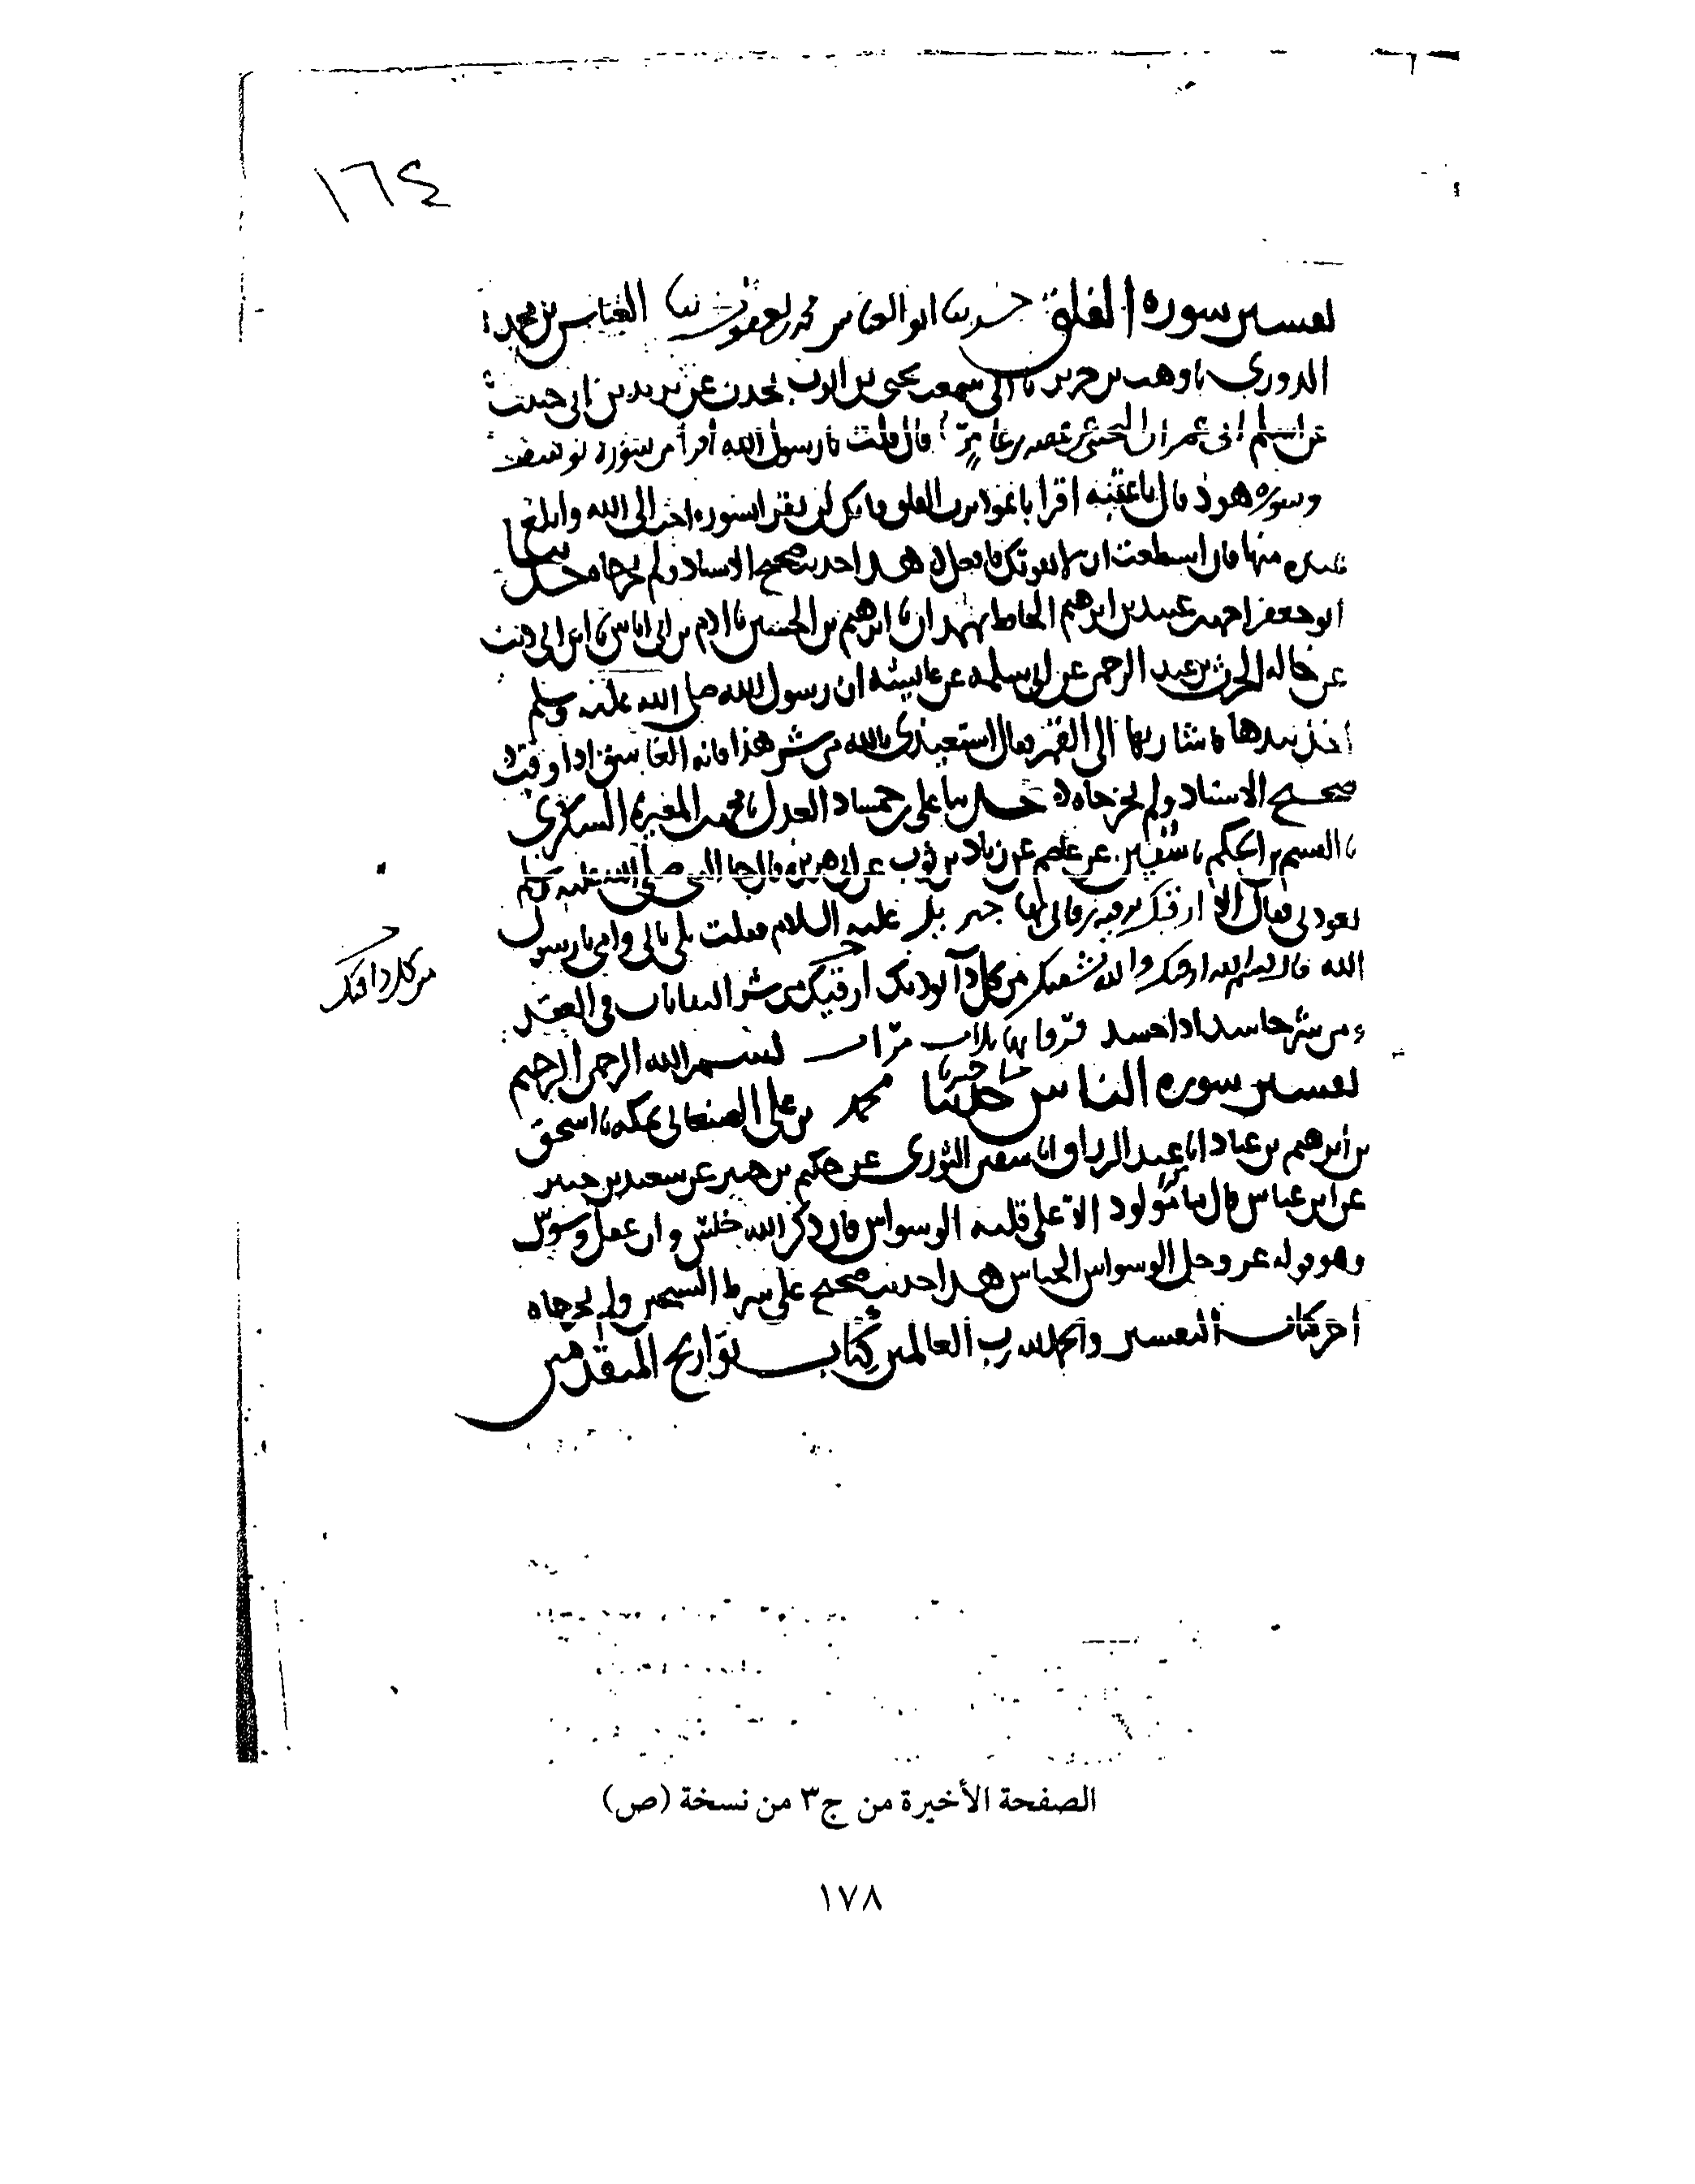 ١٦٤
تفسير سورة الفلق حدثنا ابو العباس محمد بن يعقوب ثنا العباس بن محمد
الدوري نا وهب بن جرير نا ابي سمعت يحيى بن ايوب يحدث عن يزيد بن ابي حبيب
عن اسلم ابي عمران التجيبي عن عقبه بن عامر قال قلت يا رسول الله أقرأ من سورة يوسف
وسورة هود قال يا عقبه اقرا باعوذ برب الفلق فانك لن تقرا بسوره احب الى الله وابلغ
عنده منها فان استطعت ان لا تفوتك فافعل هذا حديث صحيح الاسناد ولم يخرجاه حدثنا
ابو جعفر احمد بن عبيد بن ابرهيم الحافظ بهمدان نا ابرهيم بن الحسين نا ادم بن ابي اياس نا ابن ابي ذئب
عن خاله الحرث بن عبد الرحمن عن ابي سلمه عن عايشه ان رسول الله صلى الله عليه وسلم
اخذ بيدها فاشار بها الى القمر فقال استعيذي بالله من شر هذا فانه الغاسق اذا وقب
صحيح الاسناد ولم يخرجاه حدثنا علي بن حمشاد العدل نا محمد بن المغيرة السكري
نا القسم بن الحكم نا سفين عن عاصم عن زياد بن ثويب عن ابي هريرة قال جا النبي صلى الله عليه وسلم
يعودني فقال الا ارقيك برقيه رقاني بها جبريل عليه السلام فقلت بلى بابي وامي يا رسول
الله قال بسم الله ارقيك والله يشفيك من كل دآ يوذيك ارقيك من شر النفاثات في العقد
ومن شر حاسد اذا حسد فرقا بها ثلاث مرّات بسم الله الرحمن الرحيم
من كل دا فيك
تفسير سورة الناس حدثنا محمد بن علي الصنعاني بمكه نا اسحق
بن ابرهيم بن عباد انا عبد الرزاق انا سفين الثوري عن حكيم بن جبير عن سعيد بن جبير
عن ابن عباس قال ما مولود الا على قلبه الوسواس فان ذكر الله خنس وان غفل وسوس
وهو قوله عز وجل الوسواس الخناس هذا حديث صحيح على شرط الشيخين ولم يخرجاه
اخر كتاب التفسير والحمد لله رب العالمين كتاب تواريخ المتقدمين
الصفحة الأخيرة من ج٣ من نسخة (ص)
١٧٨